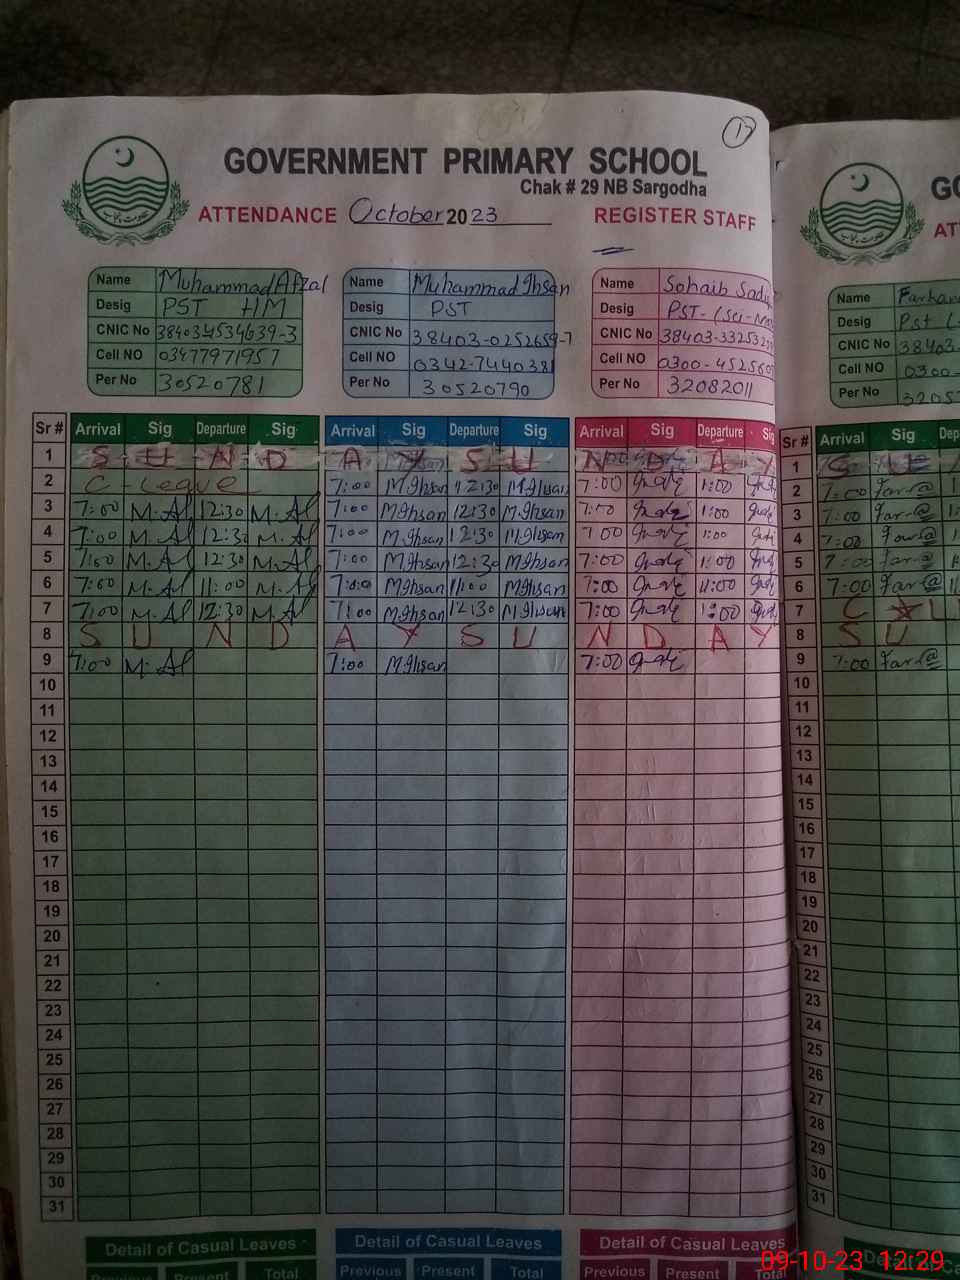 17
GOVERNMENT PRIMARY SCHOOL
Chak # 29 NB Sargodha
ATTENDANCE October 2023 REGISTER STAFF
Name Muhammad Afzal
Desig PST HM
CNIC No
Cell NO 03477971957
Per No 30520781
Name Muhammad Ihsan
Desig PST
CNIC No 38403-0252659-7
Cell NO 0342-7440381
Per No 30520790
Name Sohaib
Desig PST-
CNIC No
Cell NO
Per No 32082011
Name Farhan
Desig Pst
CNIC No 38403-
Cell NO 0300-
Per No
Sr # Arrival Sig Departure Sig Arrival Sig Departure Sig Arrival Sig Departure Sig Sr # Arrival Sig
1 S U N D A Y S U N D A Y 1 S U
2 C-Leave 7:00 M.Ihsan 12:30 M.Ihsan 7:00 1:00 2 7:00
3 7:00 M.Af 12:30 M.Af 7:00 M.Ihsan 12:30 M.Ihsan 7:00 1:00 3 7:00
4 7:00 M.Af 12:30 M.Af 7:00 M.Ihsan 12:30 M.Ihsan 7:00 1:00 4 7:00
5 7:00 M.Af 12:30 M.Af 7:00 M.Ihsan 12:30 M.Ihsan 7:00 1:00 5 7:00
6 7:00 M.Af 11:00 M.Af 7:00 M.Ihsan 11:00 M.Ihsan 7:00 11:00 6 7:00
7 7:00 M.Af 12:30 M.Af 7:00 M.Ihsan 12:30 M.Ihsan 7:00 1:00 7 C
8 S U N D A Y S U N D A Y 8 S U
9 7:00 M.Af 7:00 M.Ihsan 7:00 9 7:00
10 10
11 11
12 12
13 13
14 14
15 15
16 16
17 17
18 18
19 19
20 20
21 21
22 22
23 23
24 24
25 25
26 26
27 27
28 28
29 29
30 30
31 31
Detail of Casual Leaves Detail of Casual Leaves Detail of Casual Leaves
Previous Present Total Previous Present Total Previous Present Total
09-10-23 12:29